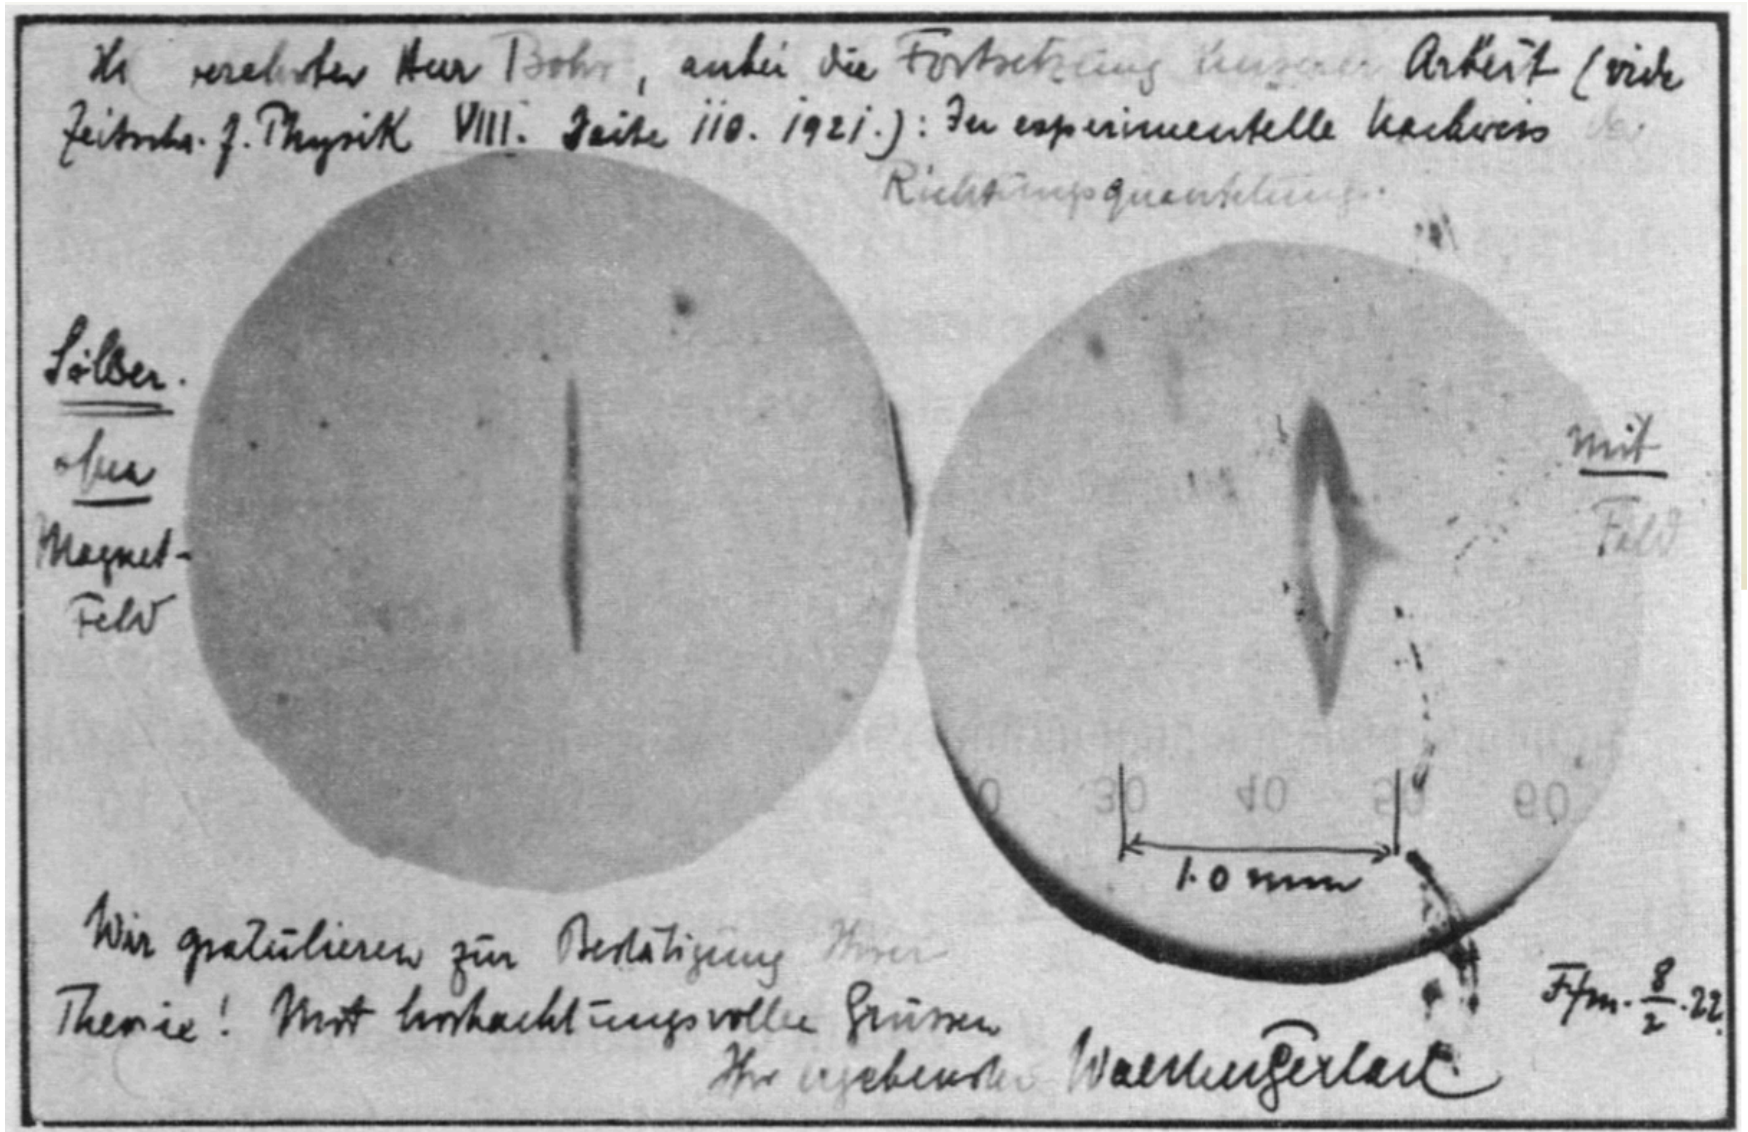 verehrter Herr Bohr, anbei die Fortsetzung unserer Arbeit (vide
Zeitschr. f. Physik VIII. Seite 110. 1921.): Der experimentelle Nachweis der
Richtungsquantelung.
Silber.
ohne
Magnet-
Feld
mit
Feld
30 40 50 60
1.0 mm
Wir gratulieren zur Bestätigung Ihrer
Theorie! Mit hochachtungsvollen Grüssen
Ihr ergebenster Walther Gerlach
Ffm. 8/2.22.